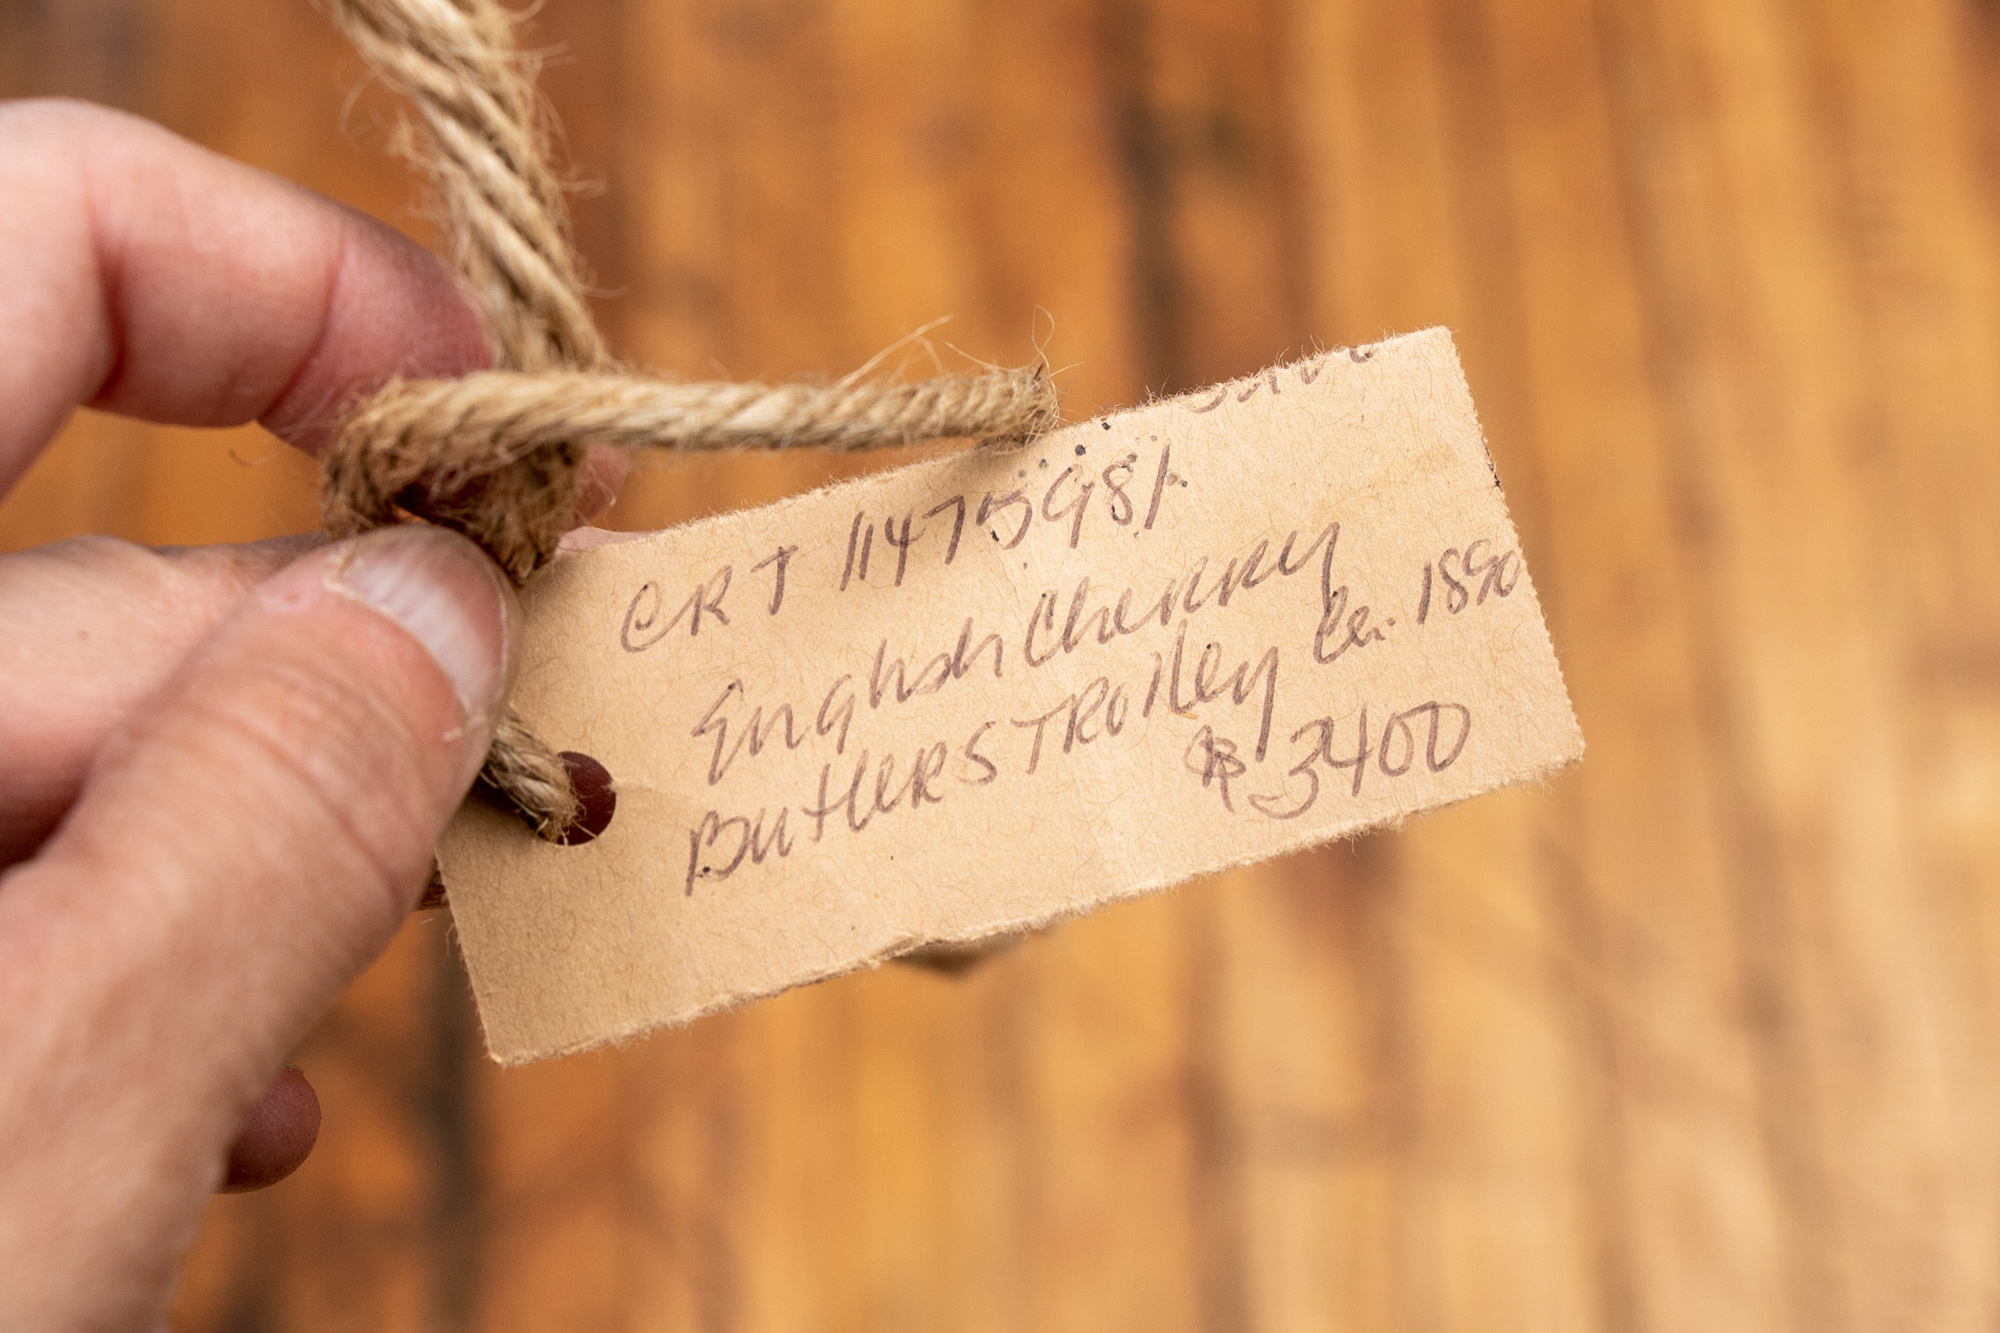 CRT 11475981
English Cherry
Butlers Trolley Ca. 1890
$3400